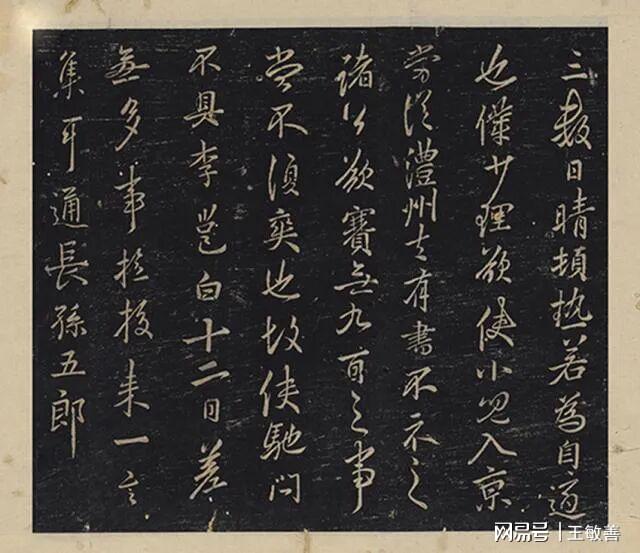 三數日晴頓熱若為自適
也僕少理欲使小兒入京
從澧州去有書不示之
諸公欲賽無九百之事
當不須奕也故使馳問
不具李邕白十二日
無多事投來一言
集耳通長孫五郎
网易号 | 王敏善